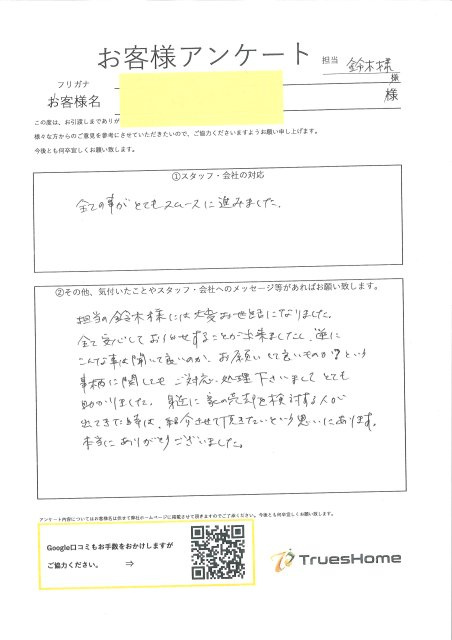 お客様アンケート
担当 鈴木様
様
フリガナ
お客様名
様
この度は、お引渡しまでありが
様々な方からのご意見を参考にさせていただきたいので、ご協力くださいますようお願い申し上げます。
今後とも何卒宜しくお願い致します。
①スタッフ・会社の対応
全ての事がとてもスムースに進みました。
②その他、気付いたことやスタッフ・会社へのメッセージ等があればお願い致します。
担当の鈴木様には大変お世話になりました。
全て安心してお任せすることが出来ましたし、逆に
こんな事は聞いて良いのか、お願いして良いものか?という
事柄に関しましても ご対応、処理下さいまして とても
助かりました。身近に家の売却を検討する人が
出てきた時は、紹介させて頂きたいという思いにあります。
本当にありがとうございました。
アンケート内容についてはお客様名は伏せて弊社ホームページに掲載させて頂きますのでご了承ください。今後とも何卒宜しくお願い致します。
Google口コミもお手数をおかけしますが
ご協力ください。 ⇒
TruesHome